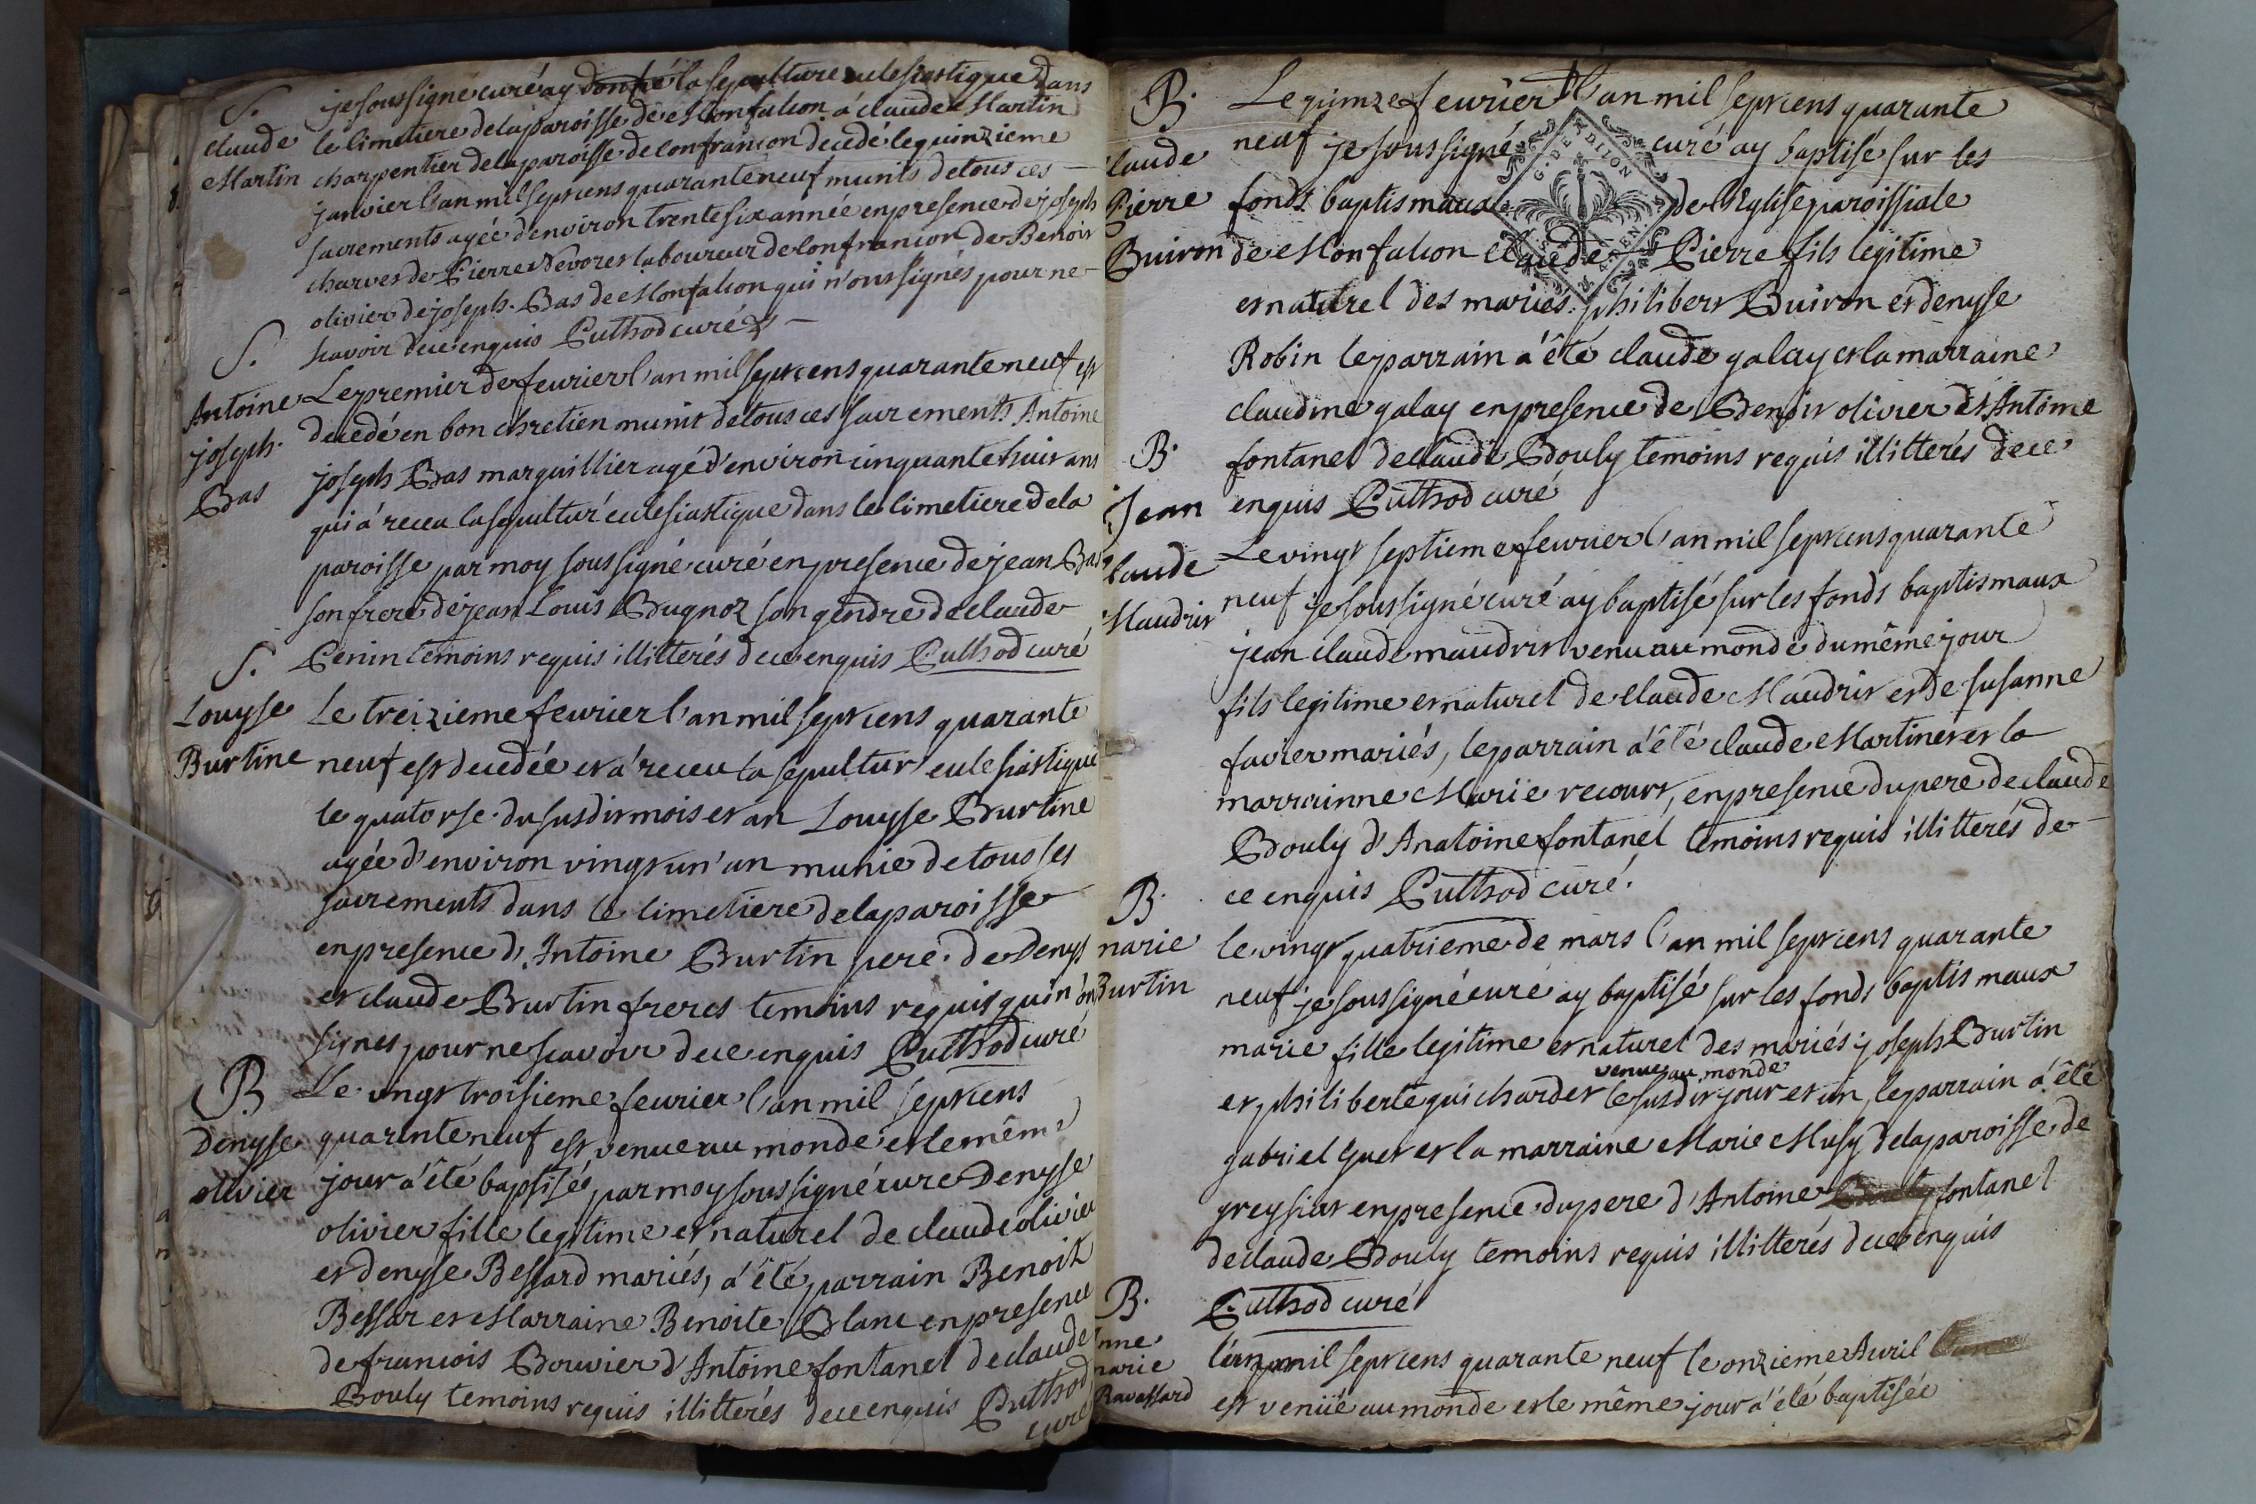 S.
je soussigné curé ay donné la sepulture eclesiastique dans
claude le cimetiere de la paroisse de Monfalcon à claude Martin
Martin charpentier de la paroisse de confrancon decedé le quinzieme
janvier l'an mil sept cens quarante neuf munits de tous ces
sacrements agée d'environ trente six année en presence de joseph
charvet de Pierre Devoret laboureur de confrancon de Benoit
olivier de joseph Bas de Monfalcon qui n'ont signés pour ne
scavoir de ce enquis Cuthod curé
S.
Antoine Le premier de fevrier l'an mil sept cens quarante neuf est
joseph decedé en bon chretien munit de tous ces sacrements Antoine
Bas joseph Bas marguillier agé d'environ cinquante huit ans
qui a receu la sepulture eclesiastique dans le cimetiere de la
paroisse par moy soussigné curé en presence de jean Bas
son frere de jean Louis Bugnoz son gendre de claude
Penin temoins requis illitterés de ce enquis Cuthod curé
S.
Louyse Le treizieme fevrier l'an mil sept cens quarante
Burtine neuf est decedée et a receu la sepultur eclesiastique
le quatorse du susdit mois et an Louyse Burtine
agée d'environ vingt un'an munie de tous ses
sacrements dans le cimetiere de la paroisse
en presence d'Antoine Burtin pere de Denys
et claude Burtin freres temoins requis qui n'on
signes pour ne scavoir de ce enquis Cuthod curé
B Le vingt troisieme fevrier l'an mil sept cens
Denyse quarante neuf est venue au monde et le même
olivier jour a été baptisés par moy soussigné curé Denyse
olivier fille legitime et naturel de claude olivier
et denyse Bessard mariés, a été parrain Benoit
Bessar et Marraine Benoite Blanc en presence
de francois Bouvier d'Antoine fontanel de claude
Bouly temoins requis illitterés de ce enquis Cuthod
curé
B. Le quinze fevrier l'an mil sept cens quarante
laude neuf je soussigné curé ay baptisé sur les
Pierre fonds baptismaux de l'Eglise paroissiale
Buiron de Monfalcon Claude Pierre fils legitime
G. DE DIJON
et naturel des mariés philibert Buiron et denyse
Robin le parrain a été claude galay et la marraine
claudine galay en presence de Benoit olivier d'Antoine
fontanel de claude Bouly temoins requis illitterés de ce
enquis Cuthod curé
B.
Jean Le vingt septieme fevrier l'an mil sept cens quarante
laude neuf je soussigné curé ay baptisé sur les fonds baptismaux
Maudrit jean claude maudrit venu au monde du même jour
fils legitime et naturel de claude Maudrit et de susanne
favier mariés, le parrain a été claude Martinet et la
marrainne Marie recourt, en presence du pere de claude
Bouly d'Anatoine fontanel temoins requis illitterés de
ce enquis Cuthod curé.
B.
marie le vingt quatrieme de mars l'an mil sept cens quarante
Burtin neuf je soussigné curé ay baptisé sur les fonds baptis maux
marie fille legitime et naturel des mariés joseph Burtin
venue au monde
et philiberte guichardet le susdit jour et an, le parrain a été
gabriel guet et la marraine Marie Musy de la paroisse de
greysiat en presence du pere d'Antoine fontanel
de claude Bouly temoins requis illitterés de ce enquis
Cuthod curé
B.
nne
marie
Ravassard
l'an mil sept cens quarante neuf le onzieme Avril
est venüe au monde et le même jour a été baptisée